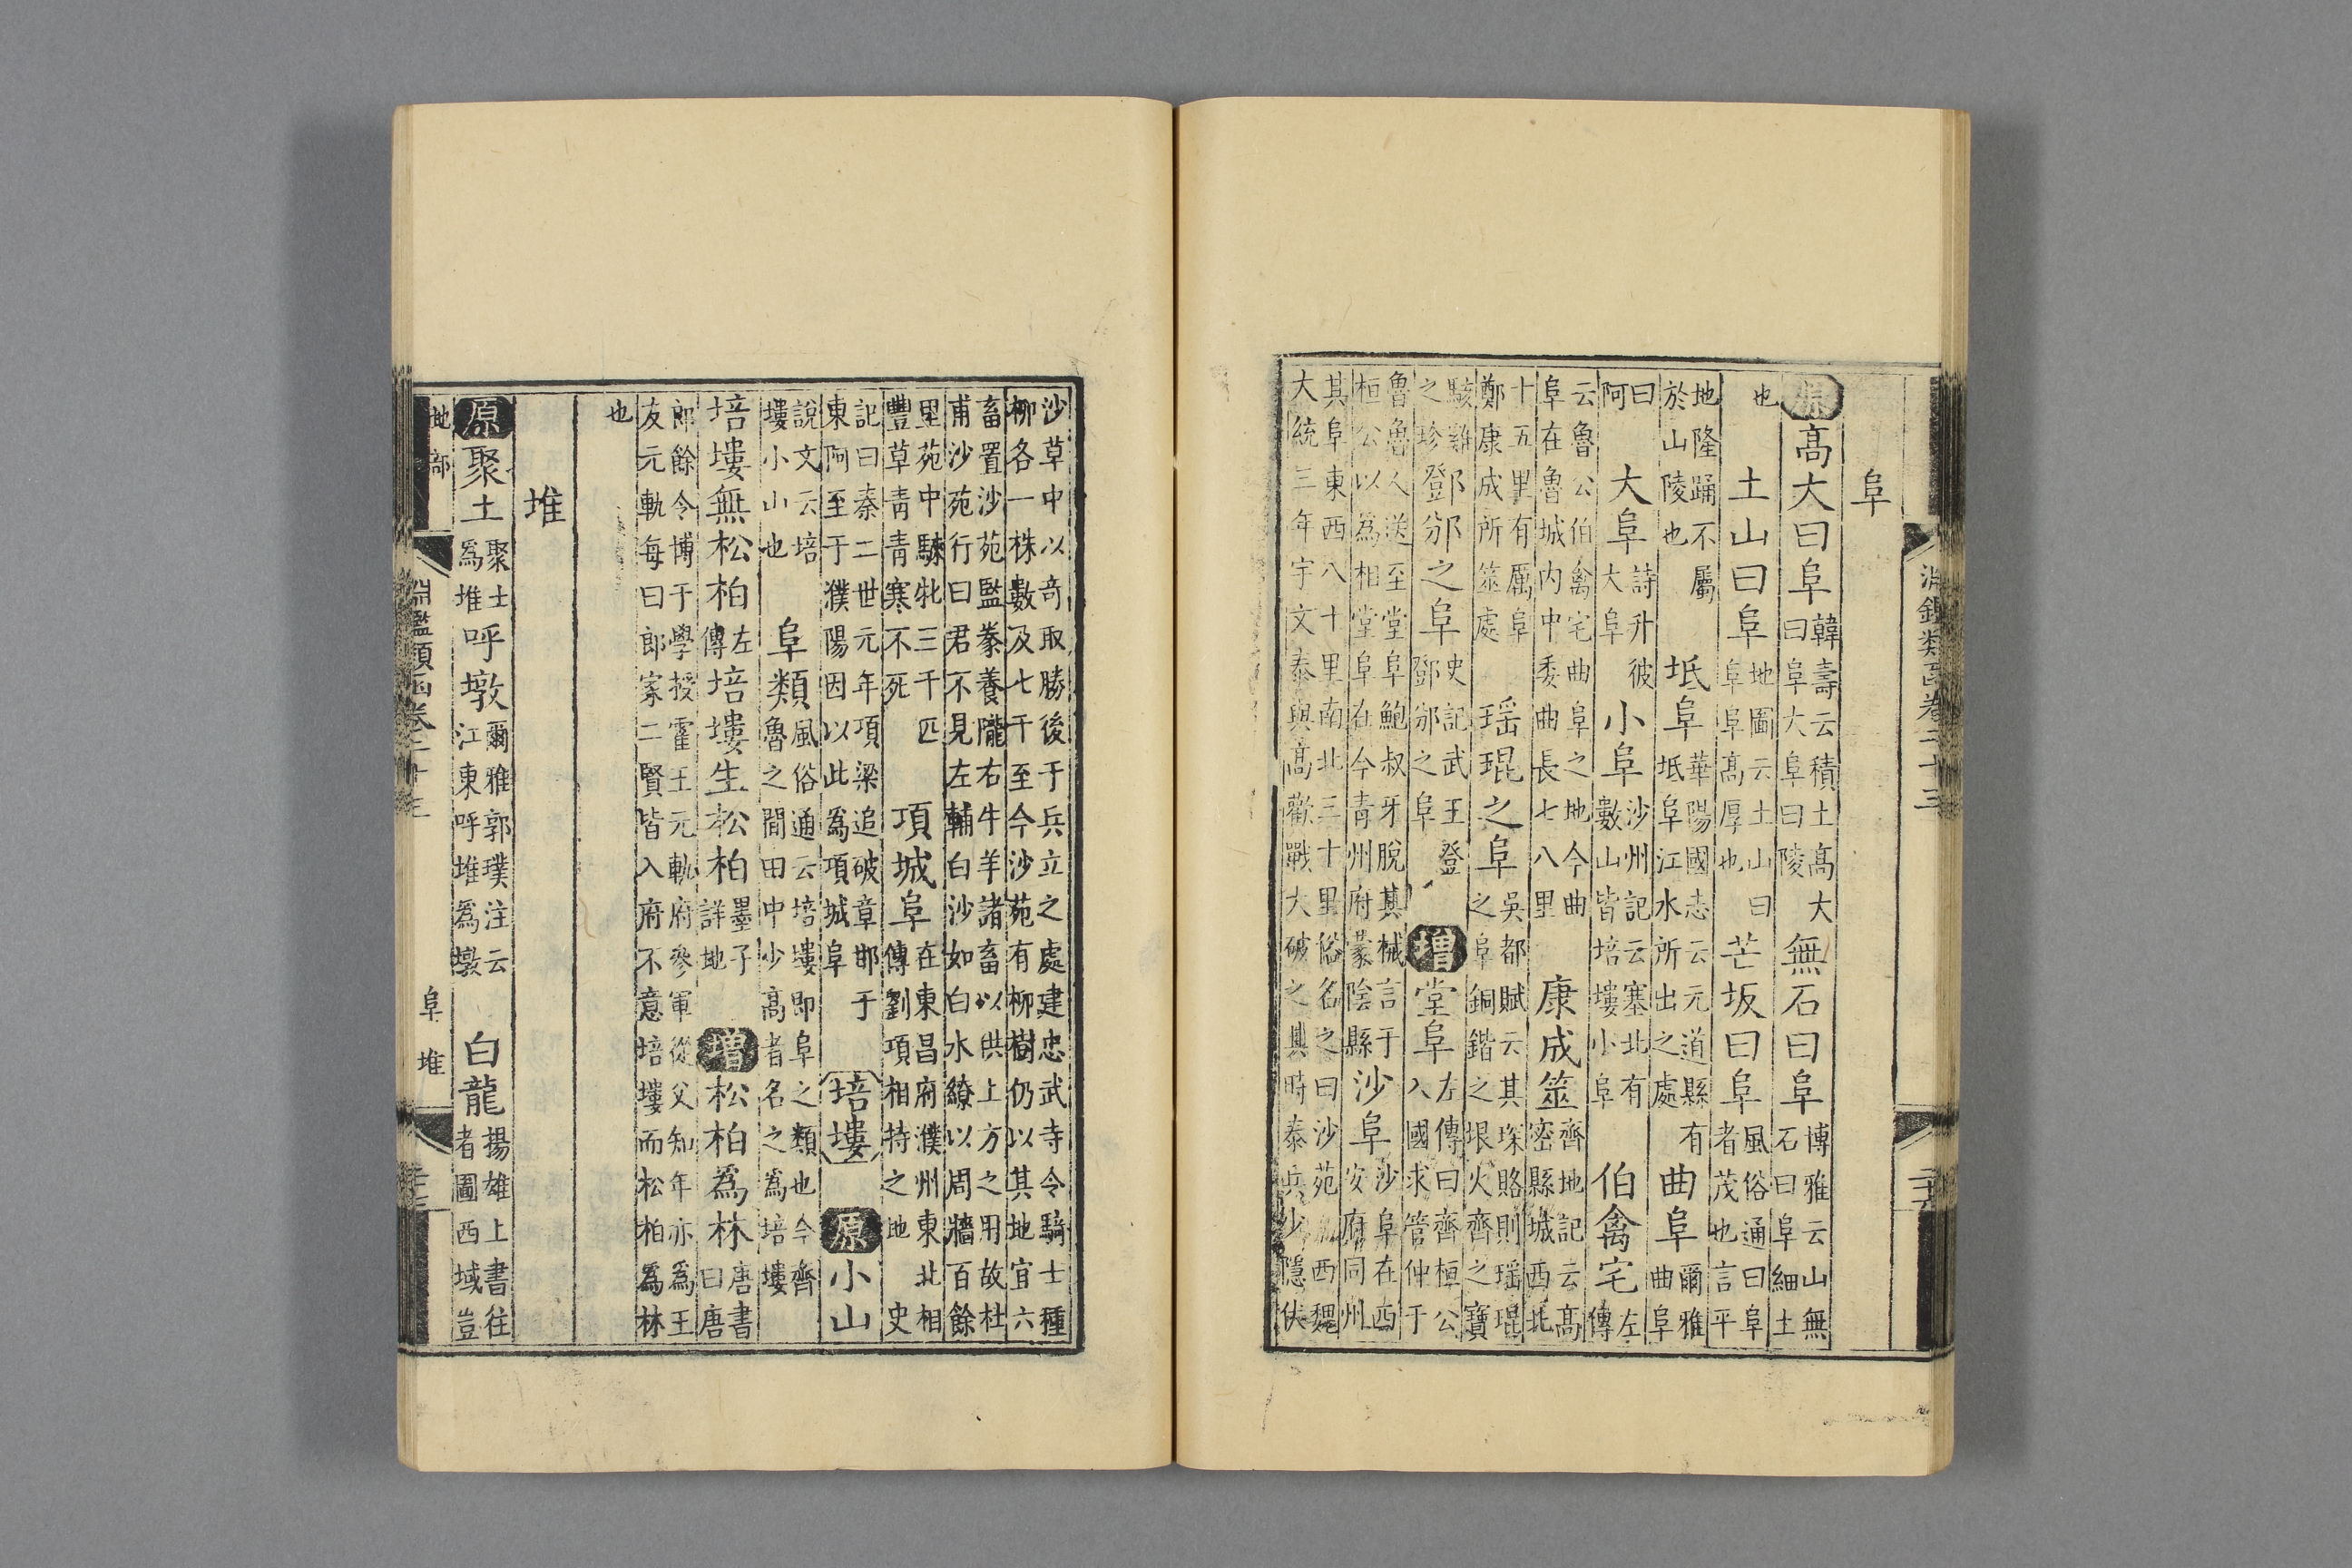 淵鑑類函卷二十三
阜
原高大曰阜韓壽云積土高大曰阜大阜曰陵無石曰阜博雅云山無石曰阜細土
也土山曰阜地圖云土山曰阜阜高厚也芒坂曰阜風俗通曰阜者茂也言平
地隆踊不屬於山陵也坻阜華陽國志云元道縣有坻阜江水所出之處曲阜爾雅曲阜
曰阿大阜詩升彼大阜小阜沙州記云塞北有數山皆培塿小阜伯禽宅左傳
云魯公伯禽宅曲阜之地今曲阜在魯城内中委曲長七八里康成筮齊地記云高密縣城西北
十五里有厲阜鄭康成所筮處瑶琨之阜吳都賦云其琛賂則瑶琨之阜銅鍇之垠火齊之寶
駭雞之珍登邠之阜史記武王登邠之阜增堂阜左傳曰齊桓公入國求管仲于
魯魯人送至堂阜鮑叔牙脫其械言于桓公以爲相堂阜在今青州府蒙陰縣沙阜沙阜在西安府同州
其阜東西八十里南北三十里俗名之曰沙苑西魏大統三年宇文泰與高歡戰大破之其時泰兵少隱伏
沙草中以奇取勝後于兵立之處建忠武寺令騎士種柳各一株數及七千至今沙苑有柳樹仍以其地宜六
畜置沙苑監豢養隴右牛羊諸畜以供上方之用故杜甫沙苑行曰君不見左輔白沙如白水繚以周牆百餘
里苑中騋牝三千匹豐草靑靑寒不死項城阜在東昌府濮州東北相傳劉項相持之地史
記曰秦二世元年項梁追破章邯于東阿至于濮陽因以此爲項城阜培塿原小山
說文云培塿小山也阜類風俗通云培塿即阜之類也今齊魯之間田中少高者名之爲培塿
培塿無松柏左傳培塿生松柏墨子詳地增松柏爲林唐書曰唐
郎餘令博于學授霍王元軌府參軍從父知年亦爲王友元軌每曰郎家二賢皆入府不意培塿而松柏爲林
也
堆
原聚土聚土爲堆呼墩爾雅郭璞注云江東呼堆爲墩白龍揚雄上書往者圖西域豈
地部 淵鑑類函卷二十三 阜 堆